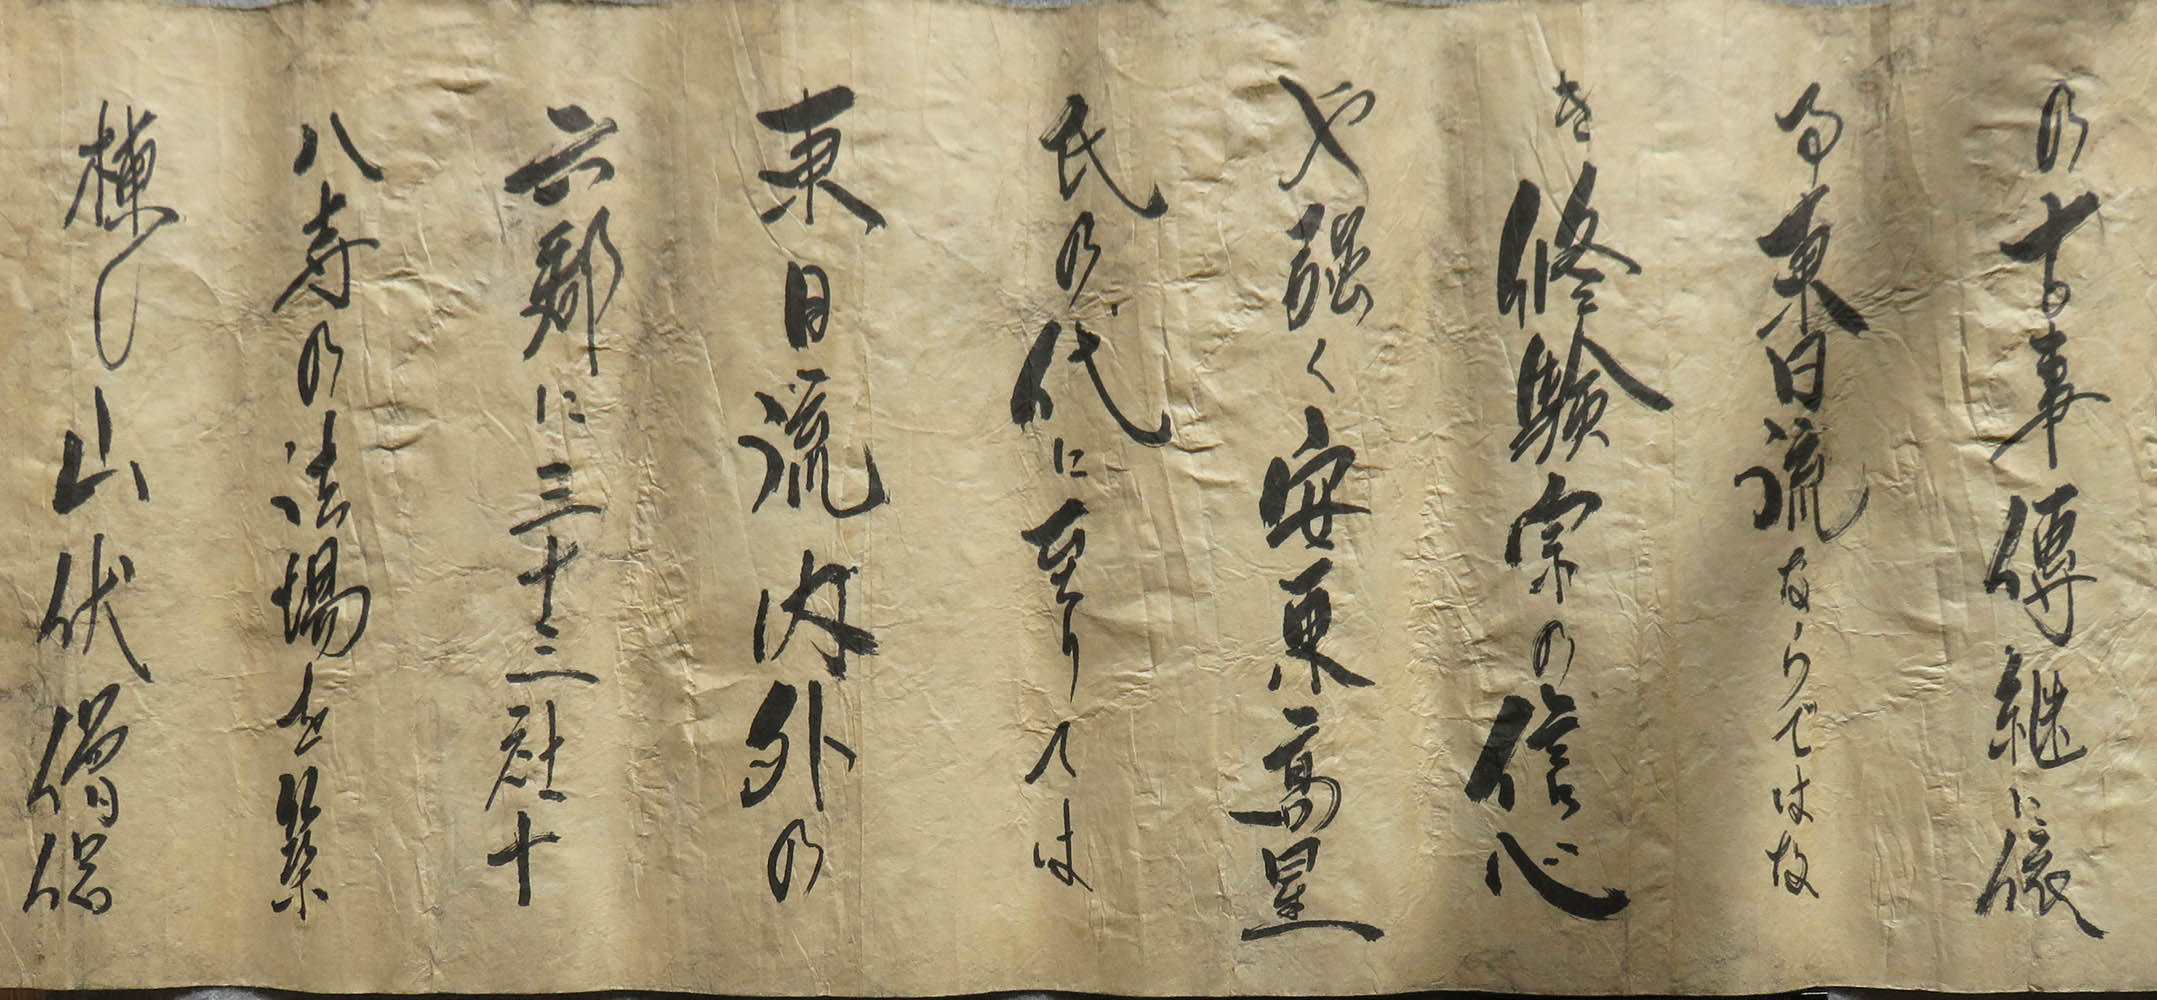 の古事傳継に依
る東日流ならでは故
き修験宗の信心
ぞ強く安東高星
氏の代に至りては
東日流内外の
六郡に三十三社十
八寺の法場を築
棟し山伏僧侶